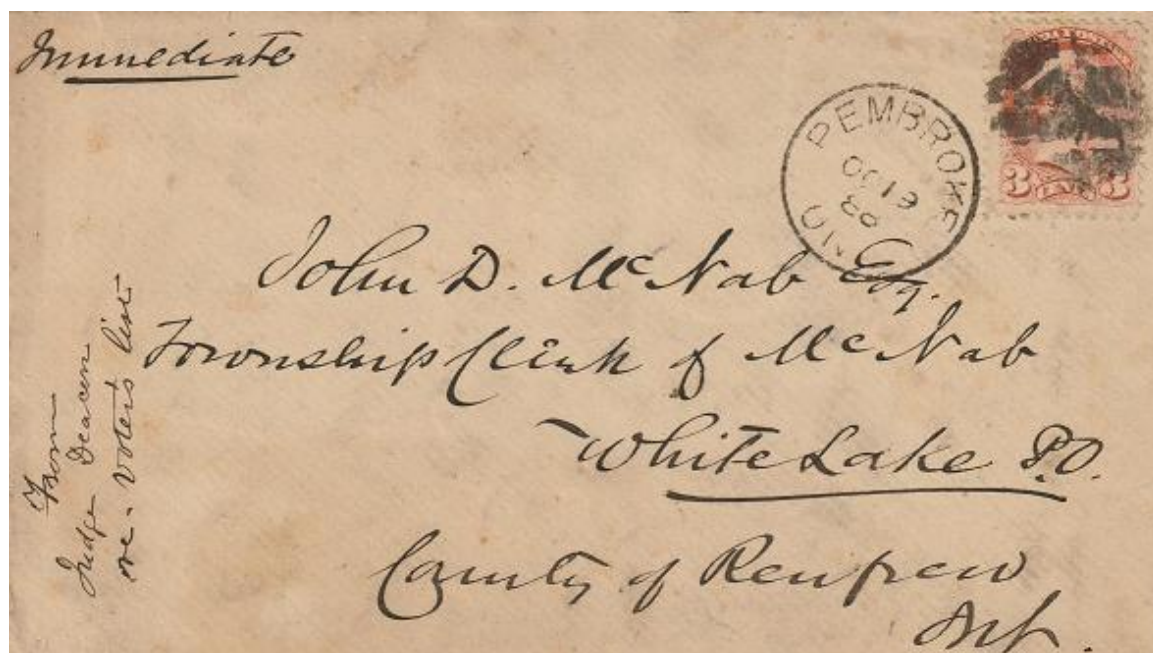 Immediate
PEMBROKE
ONT
30
93
3 3
John D. McNab Esq.
Township Clerk of McNab
White Lake P.O.
County of Renfrew
Ont.
From
Judge Deacon
re. voters lists